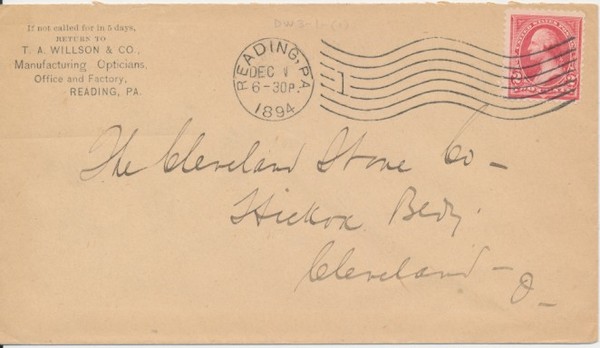 If not called for in 5 days,
RETURN TO
T. A. WILLSON & CO.,
Manufacturing Opticians,
Office and Factory,
READING, PA.
DWS-1-(1)
READING, PA.
DEC 1
6-30P.
1894
1
The Cleveland Stone Co-
Hickox Bldg.
Cleveland - O-